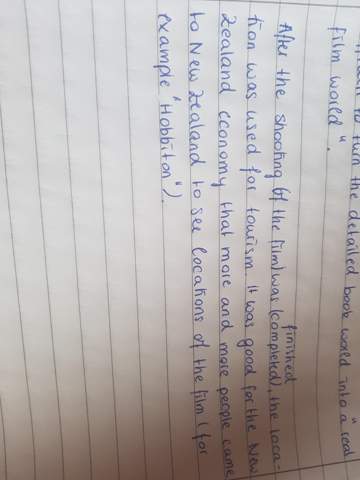 to turn the detailed book world into a "real
film world".
After the shooting (of the film) was (completed), the loca-
finished
tion was used for tourism. It was good for the New
Zealand economy that more and more people came
to New Zealand to see locations of the film (for
example "Hobbiton").